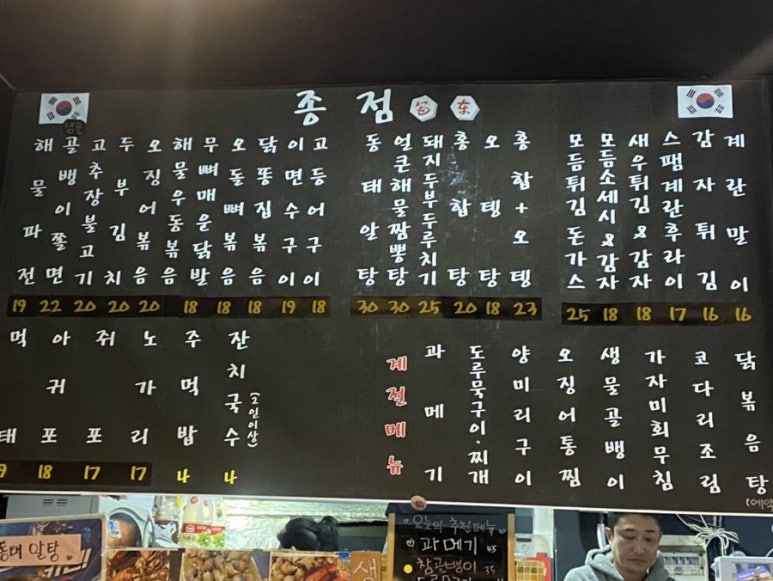 종점
해물파전
골뱅이쫄면
고추장불고기
두부김치
오징어볶음
해물우동볶음
무뼈매운닭발
오돌뼈볶음
닭똥집볶음
이면수구이
고등어구이
19 22 20 20 20 18 18 18 19 18
동태알탕 30
얼큰해물짬뽕탕 30
돼지두부두루치기 25
홍합탕 20
오뎅탕 18
홍합+오뎅 23
모듬튀김돈가스 25
모듬소세시&감자 18
새우튀김&감자 18
스팸계란후라이 17
감자튀김 16
계란말이 16
먹태 9
아귀포 18
쥐포 17
노가리 17
주먹밥 나
잔치국수 (2인이상) 나
계절메뉴
과메기
도루묵구이·찌개
양미리구이
오징어통찜
생물골뱅이
가자미회무침
코다리조림
닭볶음탕
(예약
동태 알탕
오늘의 추천메뉴
과메기 45
참골뱅이 35